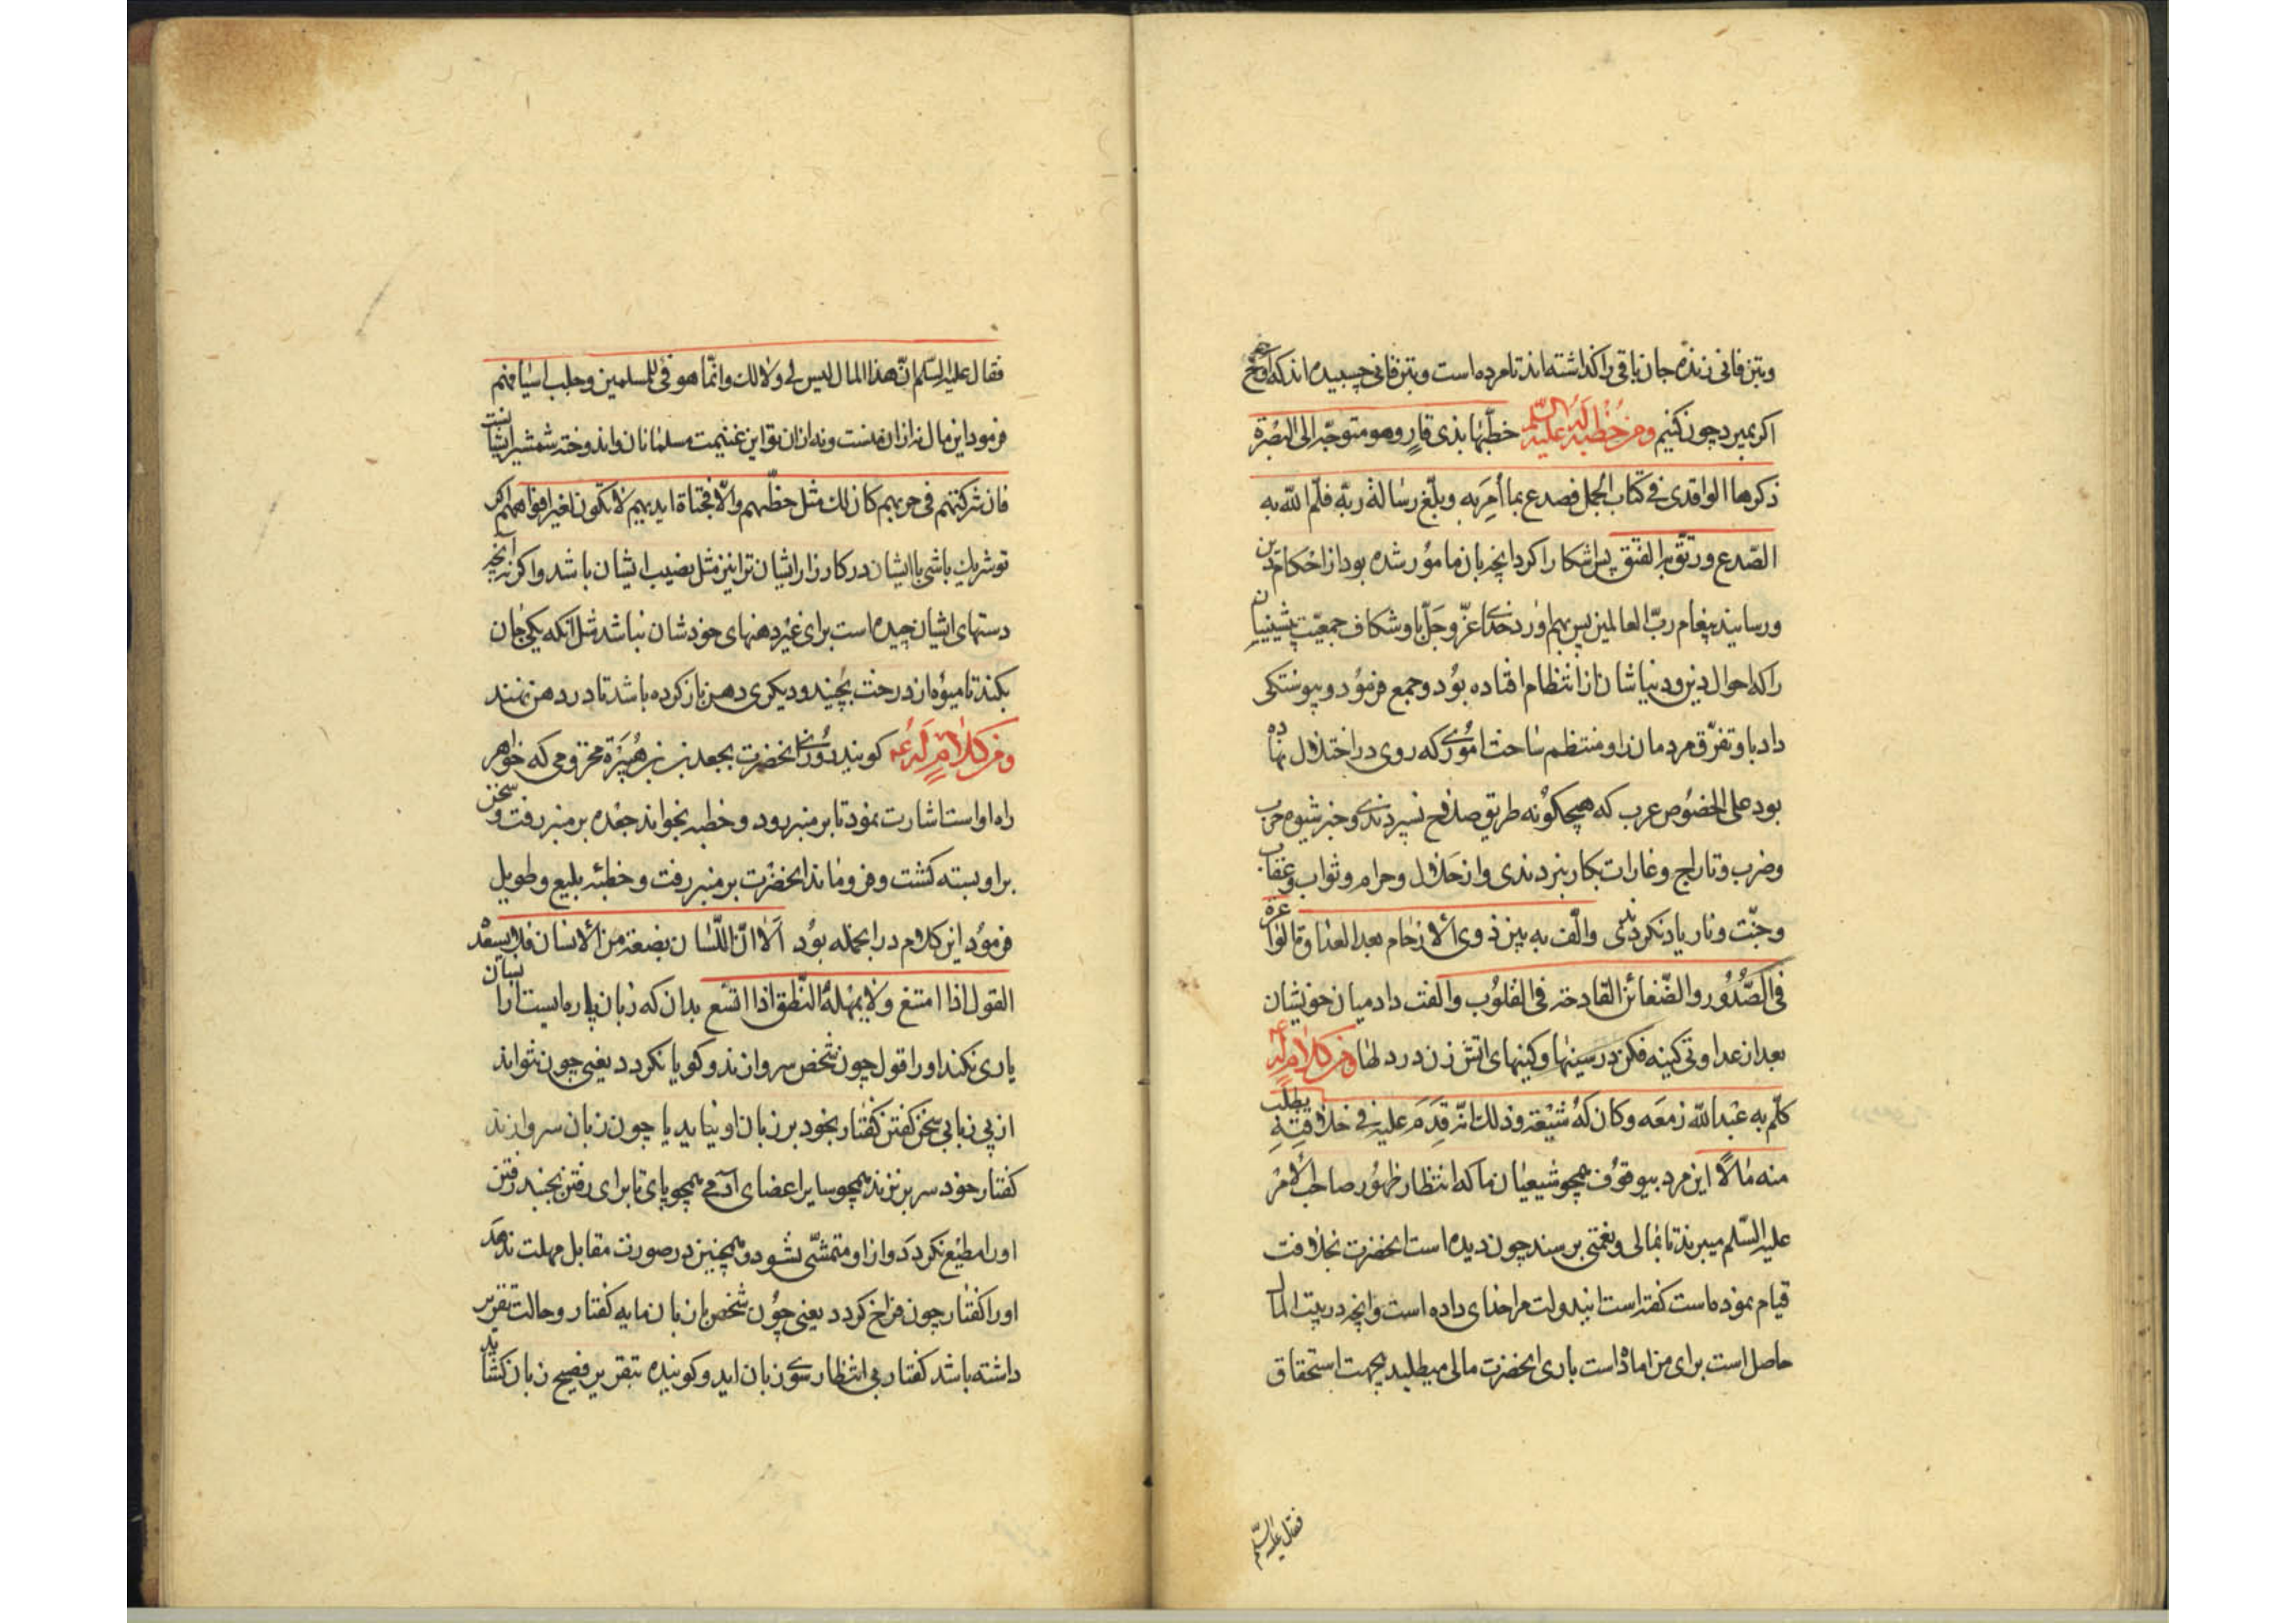 وبتن فانی زنده جان باقی را کذاشته‌اند تا مرده است وبتن فانی چسبیده‌اند که اوخ
اکر بمیرد چون کنیم ومن خطبة له علیه السلم خطبها بذی قار وهو متوجه الی البصرة
ذکرها الواقدی فی کتاب الجمل فصدع بما اُمِرَ به وبلّغ رسالة ربّه فلمّ الله به
الصّدع ورتق به الفتق پس اشکارا کرد انچه بان مامور شده بود از احکام دین
ورسانید پیغام ربّ العالمین پس بهم اورد خدای عزّ وجَلّ باو شکاف جمعیّت پیشینیان
را که احوال دین ودنیاشان از انتظام افتاده بود وجمع فرمود وپیوستکی
داد باو تفرّق مردمان را ومنتظم ساخت اموری که روی در اختلال نهاده
بود علی الخصوص عرب که هیچکونه طریق صلح نسپردندی وجز شیوه حرب
وضرب وتاراج وغارات بکار نبردندی واز حلال وحرام وثواب وعقاب
وجنّت ونار یاد نکردندی والّف به بین ذوی الارحام بعد العداوة الواغرة
فی الصّدور والضّغائن القادحة فی القلوب والفت داد میان خویشان
بعد از عداوتی کینه فکن در سینها وکینهای اتش زن در دلها ومن کلام له ع
کلّم به عبد الله زمعه وکان له شیعة وذلک انّه قَدِمَ علیه فی خلافته یطلب
منه مالًا این مرد بیوقوف همچو شیعیان ما که انتظار ظهور صاحب الامر
علیه السّلم میبرند تا بمالی ونعمتی برسند چون دیده است انحضرت بخلافت
قیام نموده است کفته است ایندولت مرا خدای داده است وانچه در بیت المال
حاصل است برای من اماده است باری انحضرت مالی میطلبد بجهت استحقاق
فقال علیه السّلم
فقال علیه السّلم انّ هذا المال لیس لی ولا لک وانّما هو فیٔ للمسلمین وجلب اسیافهم
فرمود این مال نه از ان منست ونه از ان تو این غنیمت مسلمانان واندوخته شمشیر ایشانست
فان شرکتهم فی حربهم کان لک مثل حظّهم والّا فجناة ایدیهم لا تکون لغیر افواههم اکر
تو شریک باشی با ایشان در کارزار ایشان ترا نیز مثل نصیب ایشان باشد واکر نه انچه
دستهای ایشان چیده است برای غیر دهنهای خودشان نباشد مثل انکه یکی جان
بکند تا میوه از درخت بچیند ودیکری دهن باز کرده باشد تا در دهن نهند
ومن کلام له ع کویند روزی انحضرت بجعدة بن هُبَیْرَة مخزومی که خواهر
زاده اوست اشارت نمود تا بر منبر رود وخطبه بخواند جعده بر منبر رفت وسخن
بر او بسته کشت وفرو ماند انحضرت بر منبر رفت وخطبه بلیغ وطویل
فرمود این کلام در انجمله بود اَلا انّ اللّسان بضعة من الانسان فلا یسعده
القول اذا امتنع ولا یمهله النّطق اذا اتّسع بدان که زبان پاره ایست از انسان
یاری نکند او را قول چون شخص سر وازند وکویا نکردد یعنی چون نتواند
از پی زبانی سخن کفتن کفتار بخود بر زبان او نیاید یا چون زبان سر وازند
کفتار خود سر بر نزند همچو سایر اعضای آدمی همچو پای تا برای رفتن نجنبد رفتن
او را مطیع نکردد واز او متمشّی نشود وهمچنین در صورت مقابل مهلت ندهد
او را کفتار چون فراخ کردد یعنی چون شخص بازبان مایه کفتار وحالت تقریر
داشته باشد کفتار بی انتظار سوی زبان اید وکوینده بتقریر فصیح زبان کشاید